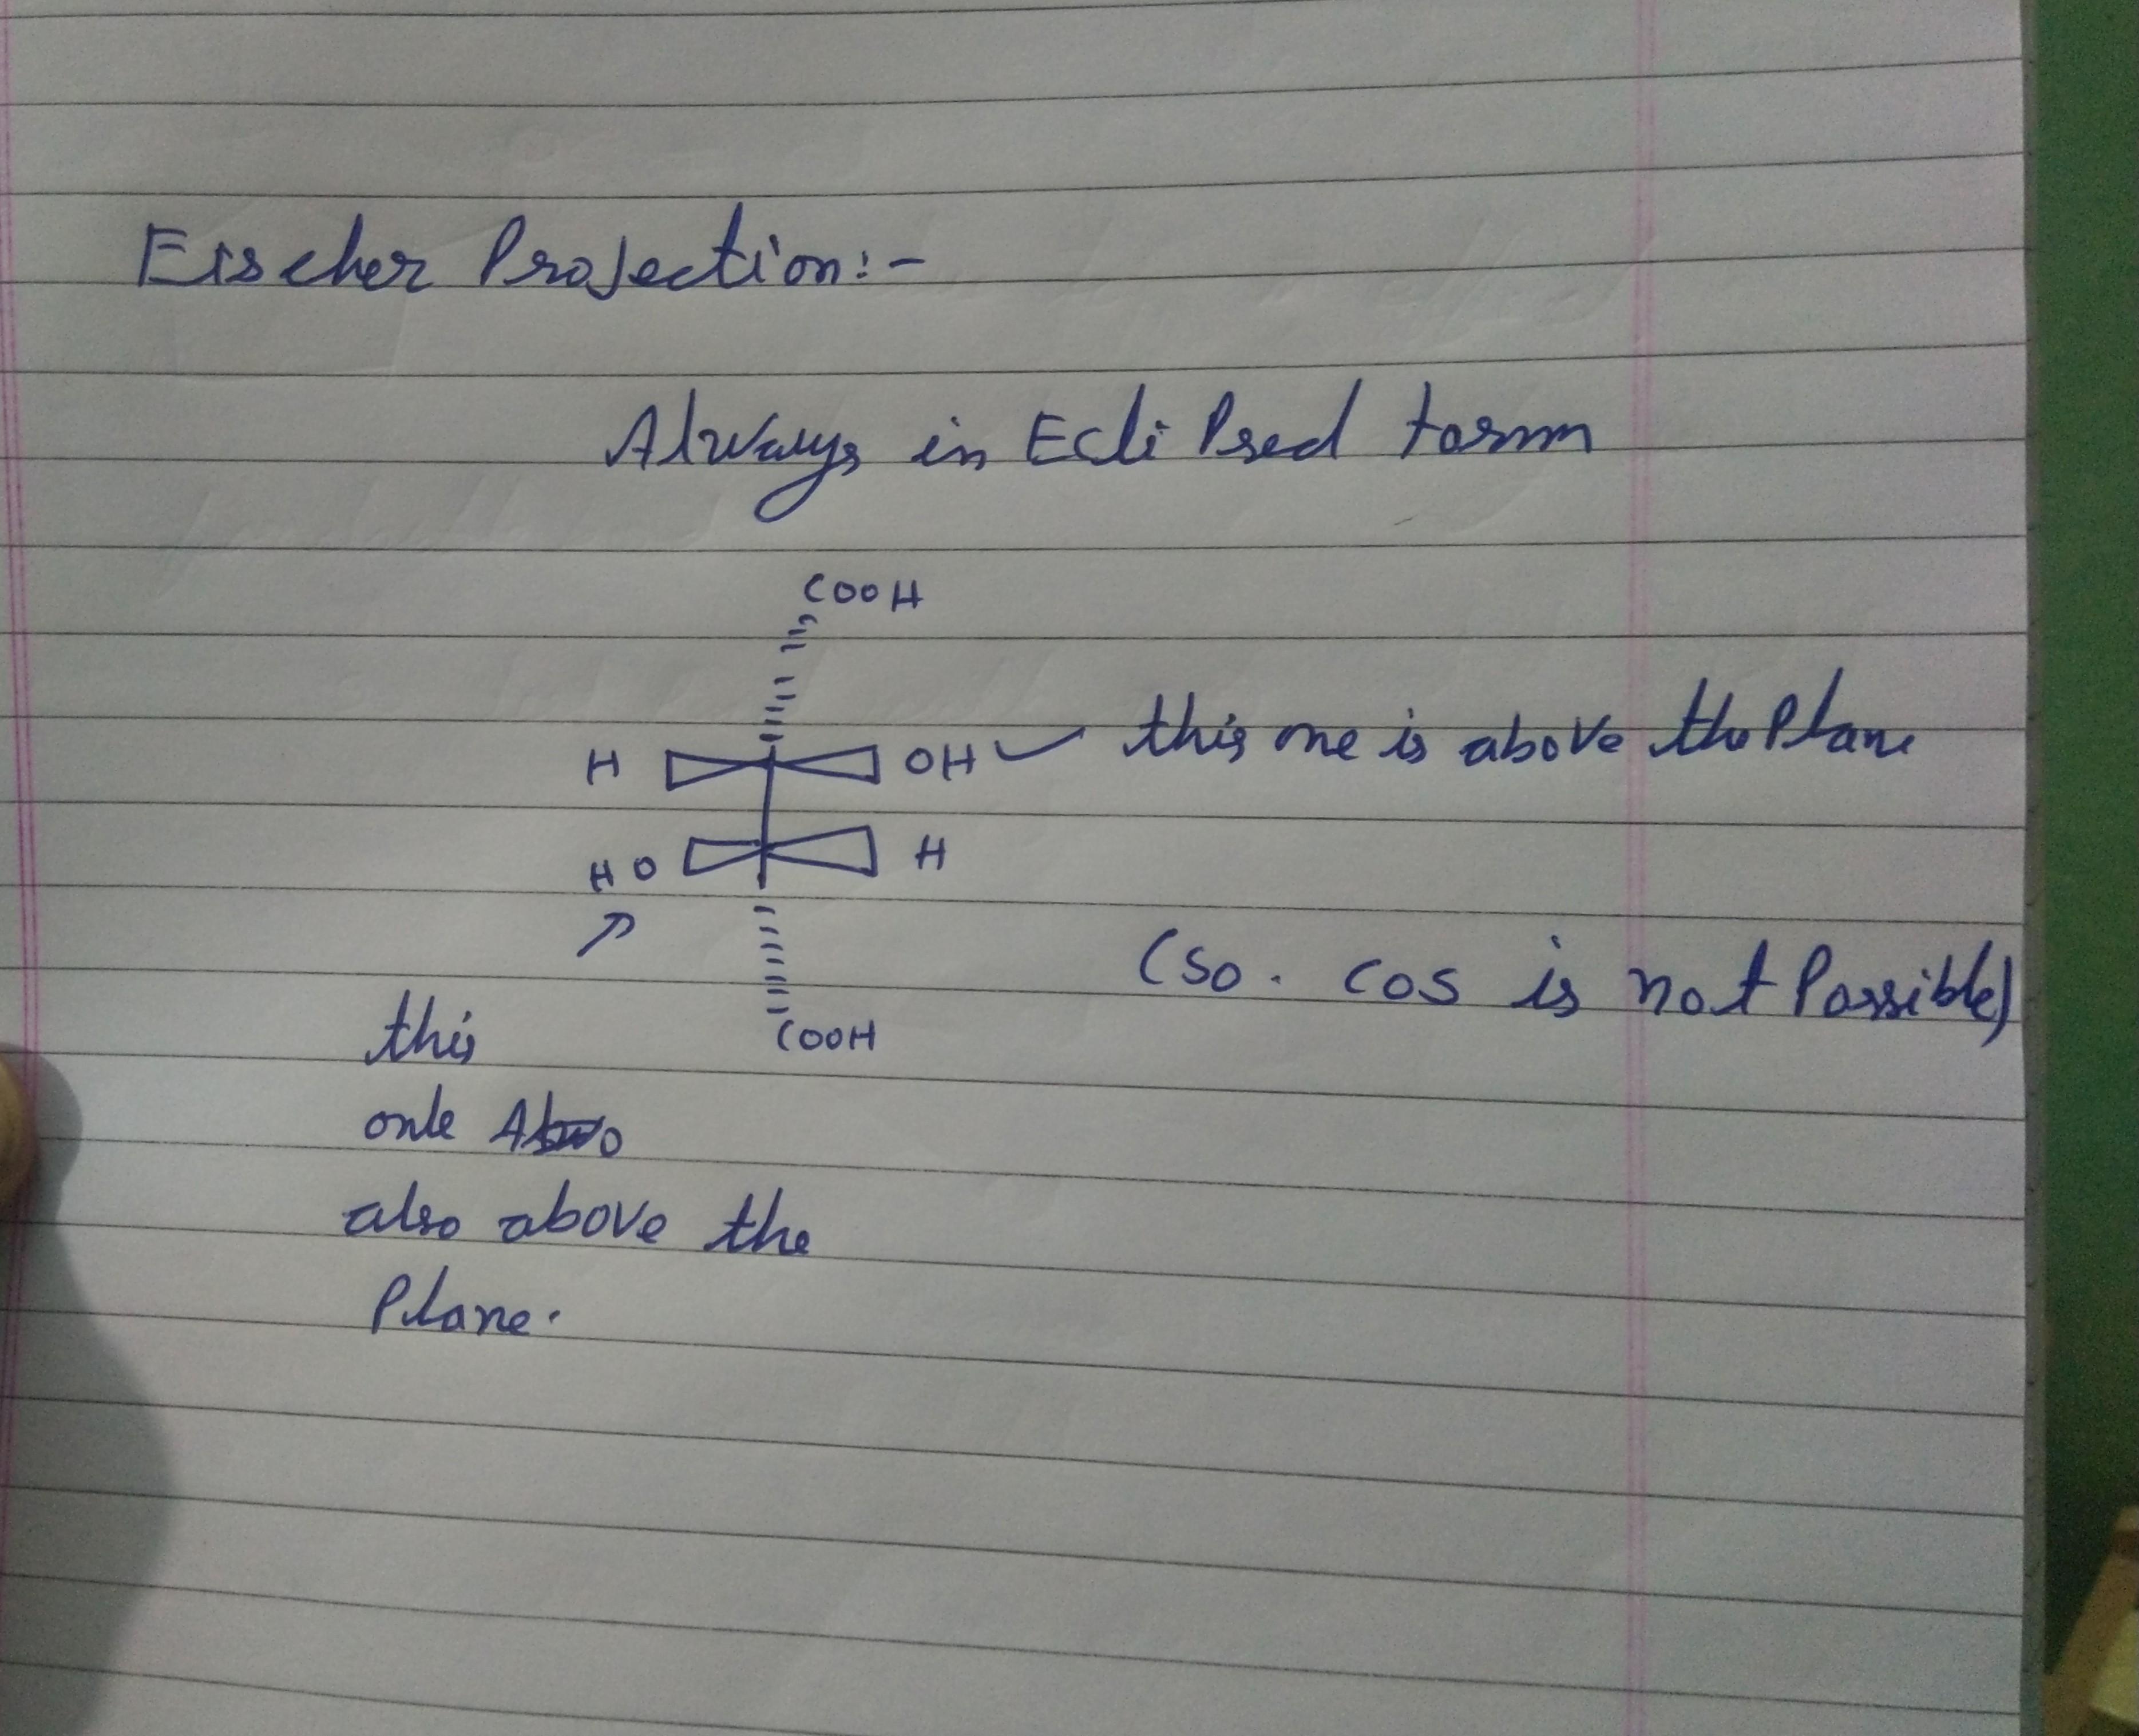 Fischer Projection:-
Always in Ecli Psed form
COOH
H OH this one is above the Plane
HO H
(so. cos is not Possible)
COOH
this
one
also above the
Plane.